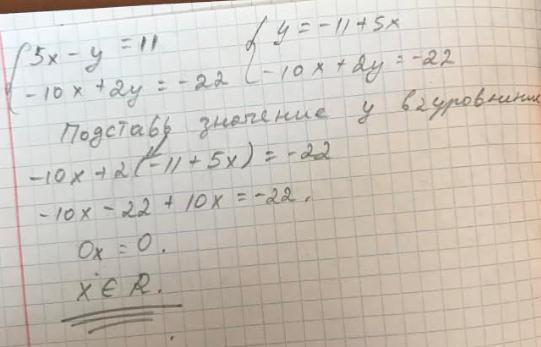 { 5x - y = 11 { y = -11 + 5x
{ -10x + 2y = -22 { -10x + 2y = -22
Подставь значение y в 2 уровнинии
-10x + 2(-11 + 5x) = -22
-10x - 22 + 10x = -22.
0x = 0.
x ∈ R.